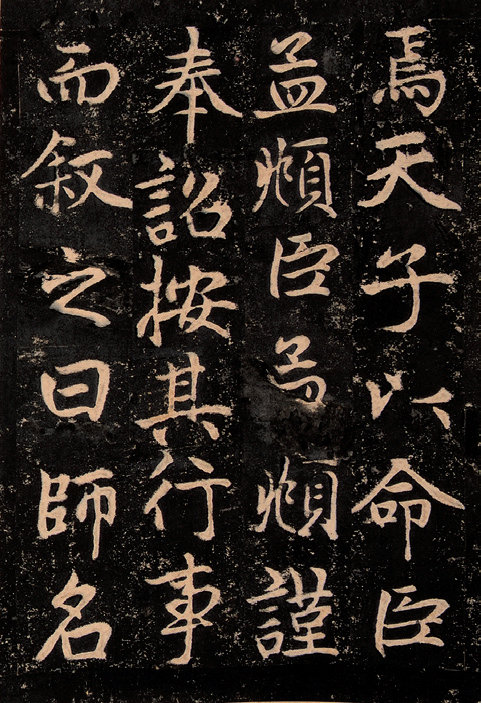 焉天子以命臣
孟頫臣孟頫謹
奉詔按其行事
而叙之曰師名